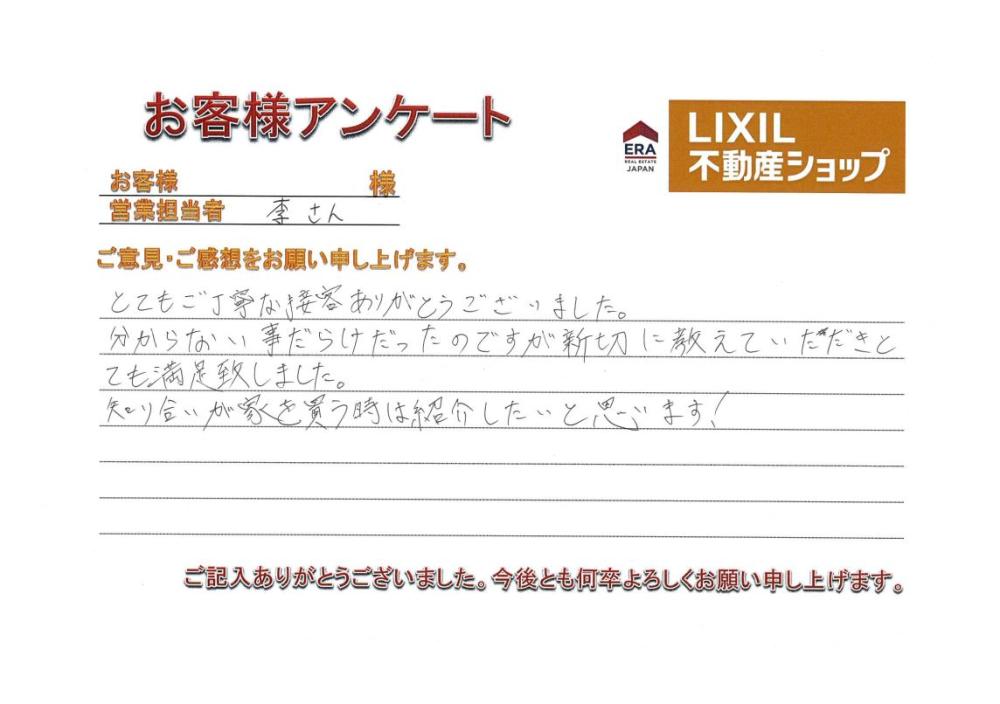 お客様アンケート
ERA
REAL ESTATE
JAPAN
LIXIL
不動産ショップ
お客様 様
営業担当者 李さん
ご意見・ご感想をお願い申し上げます。
とてもご丁寧な接客ありがとうございました。
分からない事だらけだったのですが新切に教えていただきと
ても満足致しました。
知り合いが家を買う時は紹介したいと思います!
ご記入ありがとうございました。今後とも何卒よろしくお願い申し上げます。